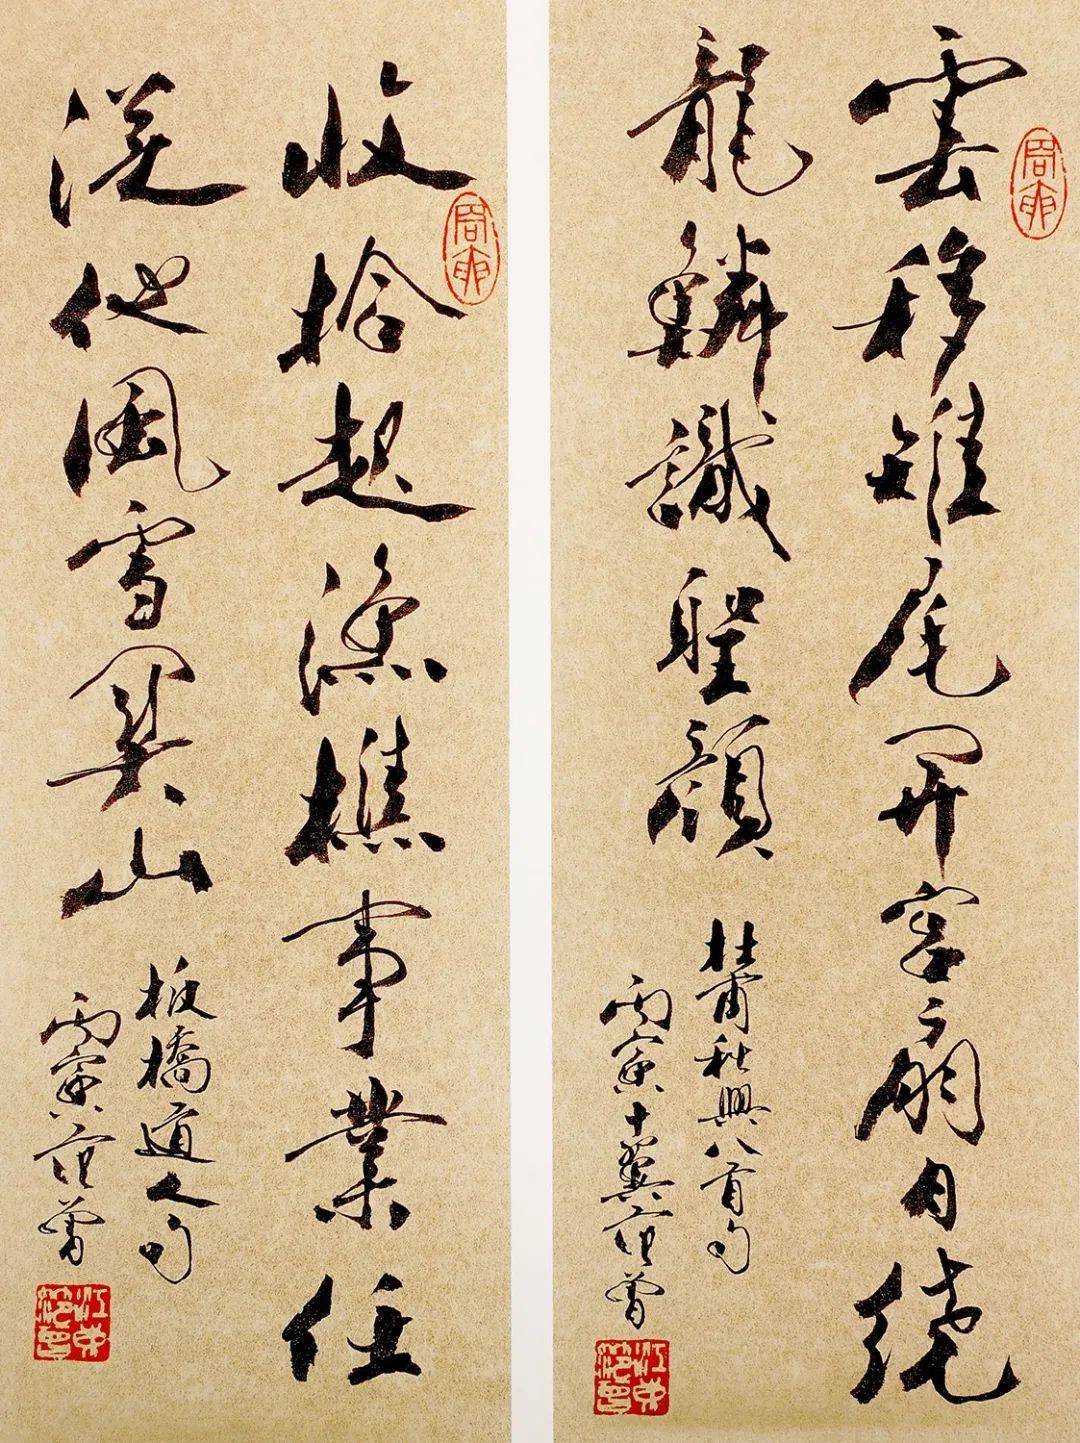 雲移雉尾開宮扇日繞
龍鱗識聖顏
杜甫秋興八首句
丙寅十翼范曾
江東范曾
收拾起漁樵事業任
從他風雪關山
板橋道人句
丙寅范曾
江東范曾